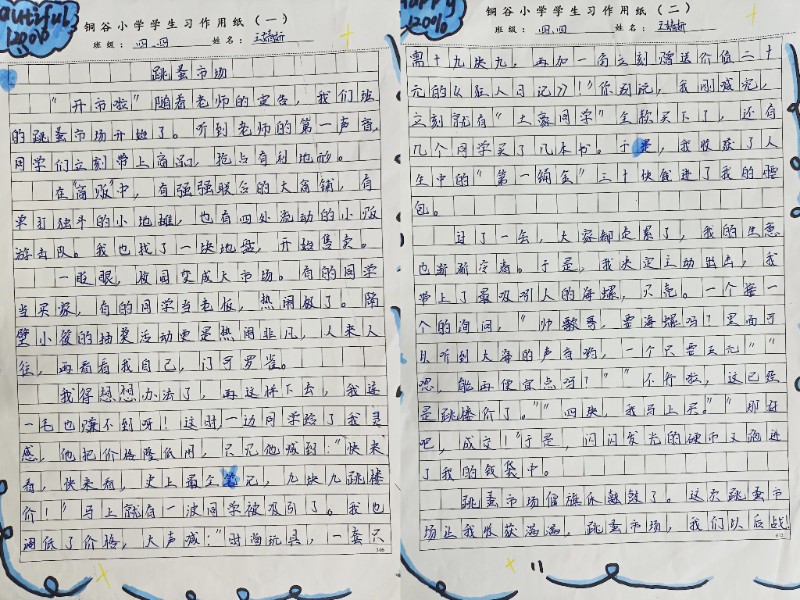 eautiful
1200%
铜谷小学学生习作用纸（一）
班级：四.四 姓名：
跳蚤市场
“开市啦”随着老师的宣告，我们班
的跳蚤市场开始了。听到老师的第一声音，
同学们立刻带上商品，抢占有利地形。
在“商贩”中，有强强联合的大商铺，有
单打独斗的小地摊，也有四处流动的小贩
游击队。我也找了一块地盘，开始售卖。
一眨眼，校园变成大市场。有的同学
当买家，有的同学当老板，热闹极了。隔
壁小俊的抽奖活动更是热闹非凡，人来人
往，再看看我自己，门可罗雀。
我得想想办法了，再这样下去，我连
一毛也赚不到呀！这时一边同学给了我灵
感，他把价格降低用，只见他喊到：“快来
看，快来看，史上最全笔记，九块九跳楼
价！”马上就有一波同学被吸引了。我也
调低了价格，大声喊：“时尚玩具，一套只
146
happy
1200%
铜谷小学学生习作用纸（二）
班级：四.四 姓名：
需十九块九，再加一角立刻赠送价值二十
元的《狂人日记》！”你别说，我刚喊完，
立刻就有“土豪同学”全款买下了，还有
几个同学买了几本书。于是，我收获了人
生中的“第一桶金”三十块钱进了我的腰
包。
过了一会，大家都走累了，我的生意
也渐渐冷清。于是，我决定主动出击，我
带上了最吸引人的海螺，贝壳。一个接一
个的询问，“帅歌哥，要海螺吗？里面可
以听到大海的声音哟，一个只要五元”“
嗯，能再便宜点吗？”“不行啦，这已经
是跳楼价了。”“四块，我马上买。”“那好
吧，成交！”于是，闪闪发光的硬币又跑进
了我的钱袋中。
跳蚤市场偃旗息鼓了。这次跳蚤市
场让我收获满满，跳蚤市场，我们以后战！